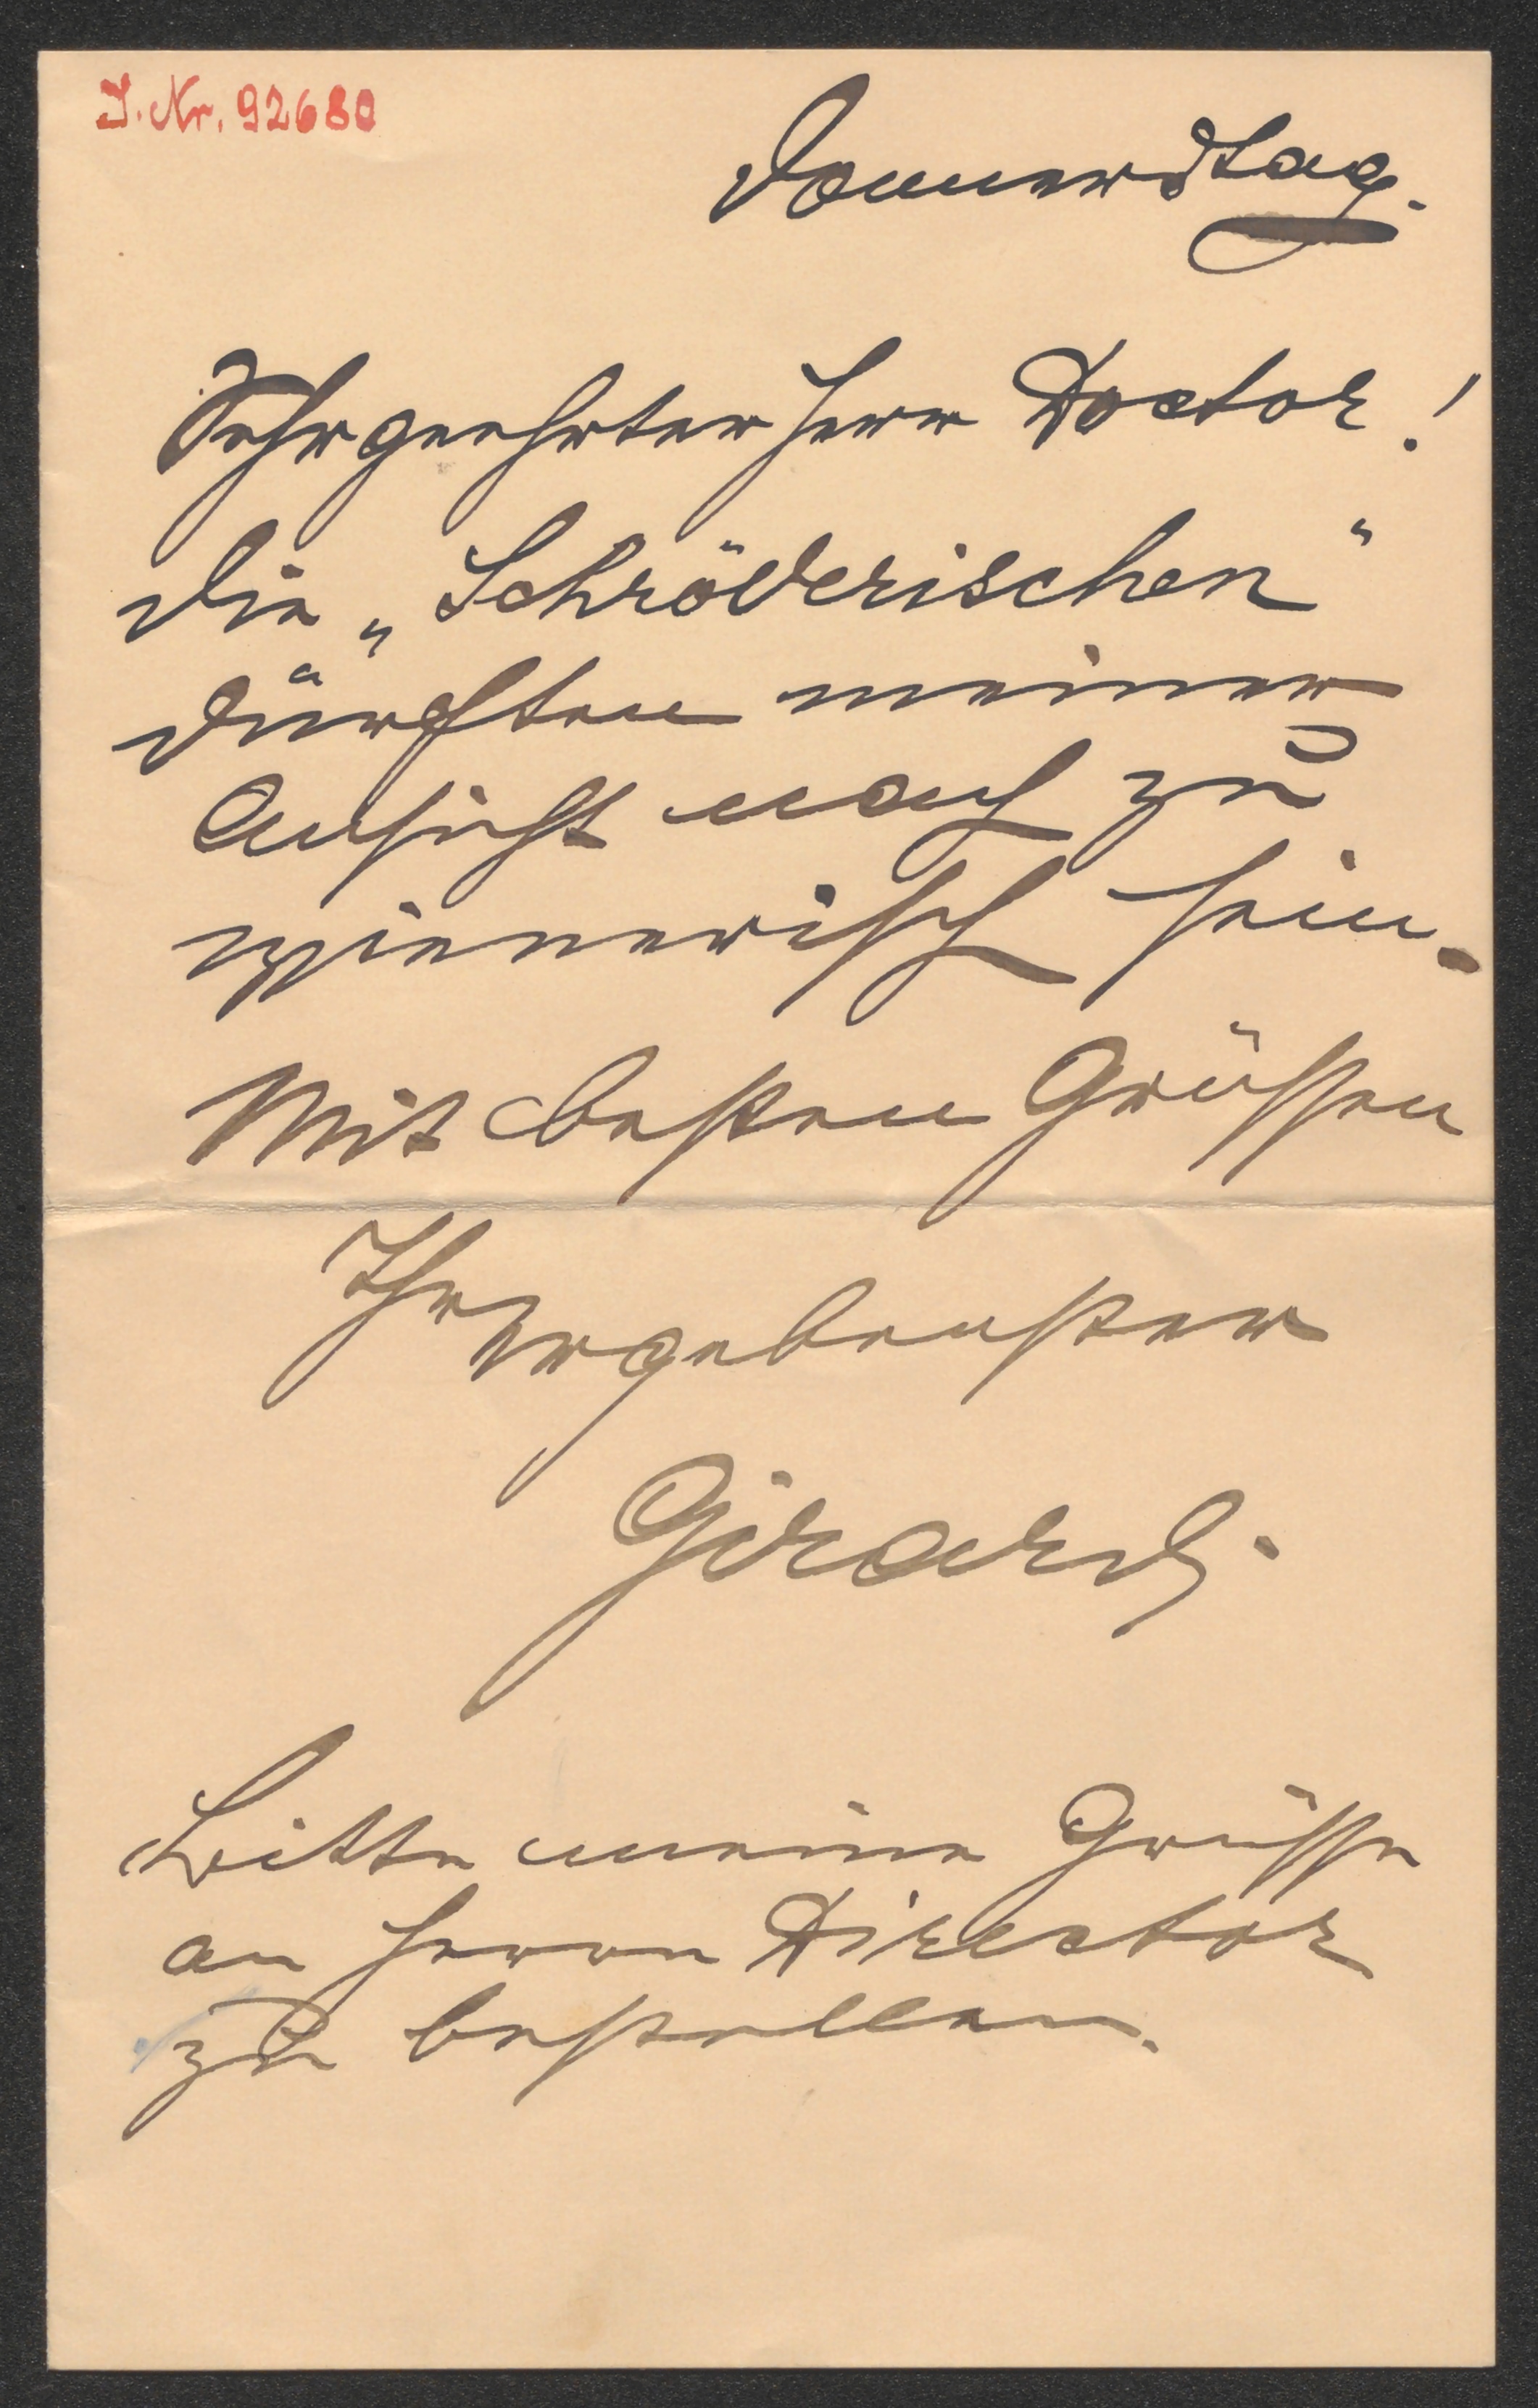 I. Nr. 92680
Donnerstag.
Sehr geehrter Herr Doctor!
Die „Schröderischen“
dürften meiner
Ansicht nach zu
wienerisch sein.
Mit besten Grüssen
Ihr ergebenster
Girardi
Bitte meine Grüsse
an Herrn Director
zu bestellen.